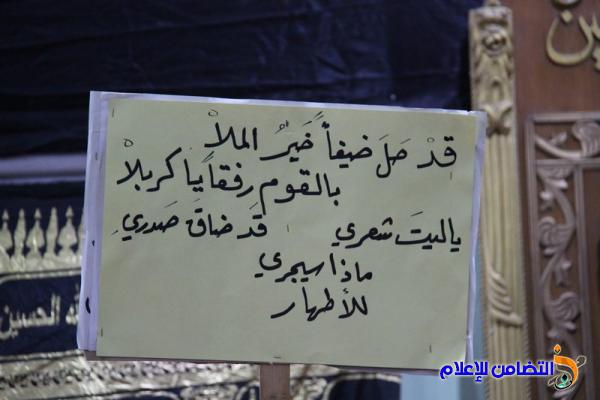 قَدْ حَلَ ضيفاً خَيرُ الملأ
بالقومِ رفقاً يا كربلا
ياليتَ شعري قَد ضاقَ صَدري
ماذا سيجري
للأطهار
الحسين
التضامن للإعلام